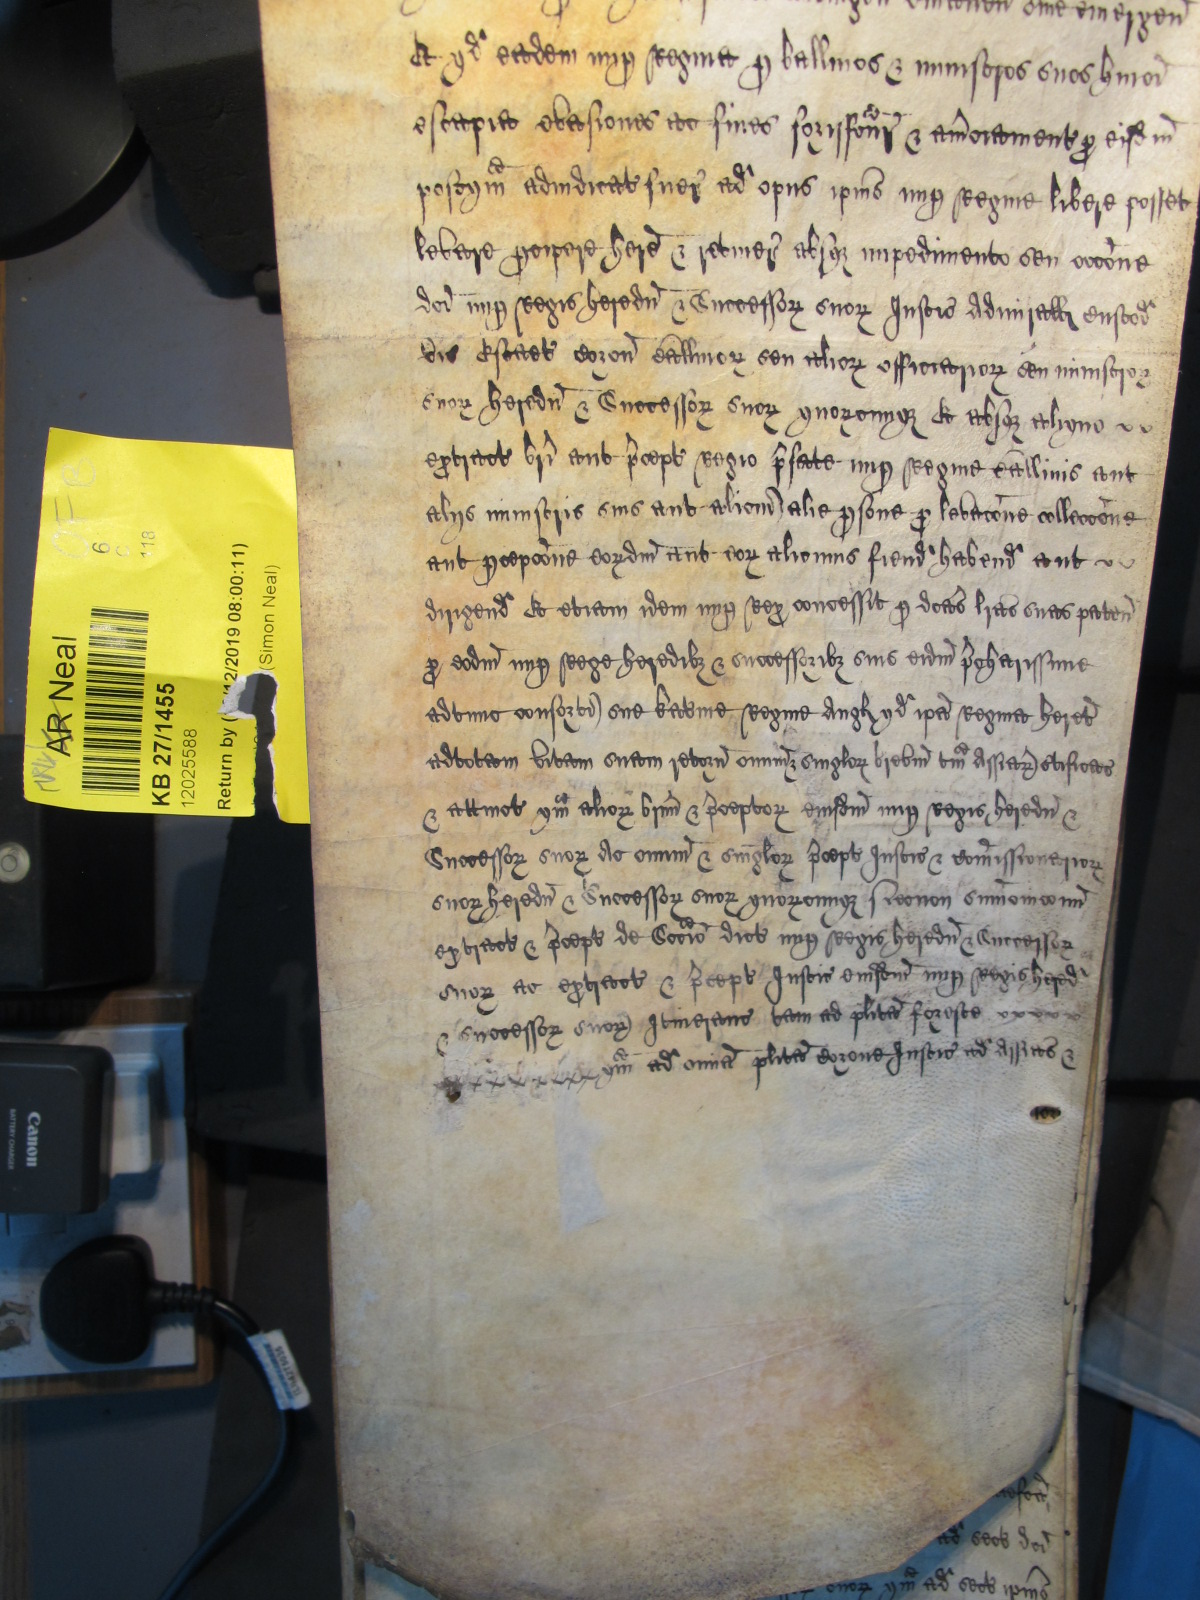 Et qd eadem nup Regina p Ballivos & ministros suos hmoi
escapia evasiones ac fines forisfcur & amciament p eisdm
postqm adiudicat fuer ad opus ipius nup Regine libere posset
levare pcipere here & retiner absq impedimento seu occone
dci nup Regis heredu & Successor suor Justic Admirall custod
vic Escaet coron Ballivor seu alior officiarior seu ministror
suor heredu & Successor suor quorcumq Et absq aliquo
extract bri aut pcept regio pfate nup Regine Ballivis aut
aliis ministris suis aut alicui alie psone p levacone colleccone
aut pcepcone eordm aut eor alicuius fiend habend aut
dirigend Et etiam idem nup Rex concessit p dcas lras suas paten
p eodm nup Rege heredibz & successoribz suis eidm pcharissime
adtunc consorti sue Katine Regine Angl qd ipa Regina heret
ad totam vitam suam retorn omniu & singlor brevium tam Assisar Ctificac
& attinct qm alior briu & pceptor eiusdm nup Regis heredu &
Successor suor Ac omniu & singlor pcept Justic & Comissionarior
suor heredu & Successor suor quorcumq sumonicionu
extract & pcept de Sccio dict nup Regis heredu & Successor
suor ac extract & pcept Justic eiusdm nup Regis hered
& successor suor Itinerant tam ad plita foreste
qm ad omia plita corone Justic ad assisas &
AR Neal
6
C
118
KB 27/1455
12025588
Return by (12/2019 08:00:11)
(Simon Neal)
Canon
BATTERY CHARGER
ad sect dci
suor qm ad sect ipius